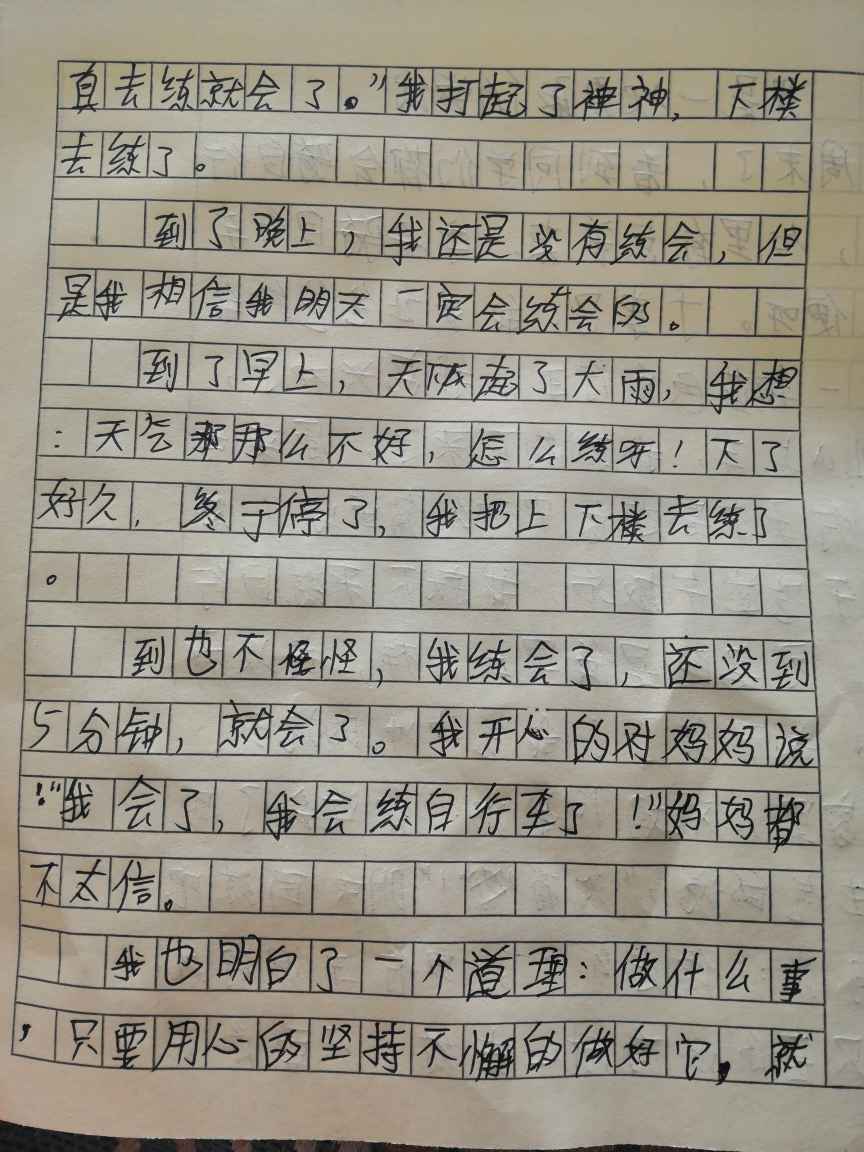 真去练就会了。”我打起了神神，下楼
去练了。
到了晚上，我还是没有练会，但
是我相信我明天一定会练会的。
到了早上，天下起了大雨，我想
：天气那那么不好，怎么练呀！下了
好久，终于停了，我把上下楼去练了
。
到也不怪怪，我练会了，还没到
5分钟，就会了。我开心的对妈妈说
：“我会了，我会练自行车了！”妈妈都
不太信。
我也明白了一个道理：做什么事
，只要用心的坚持不懈的做好它，就